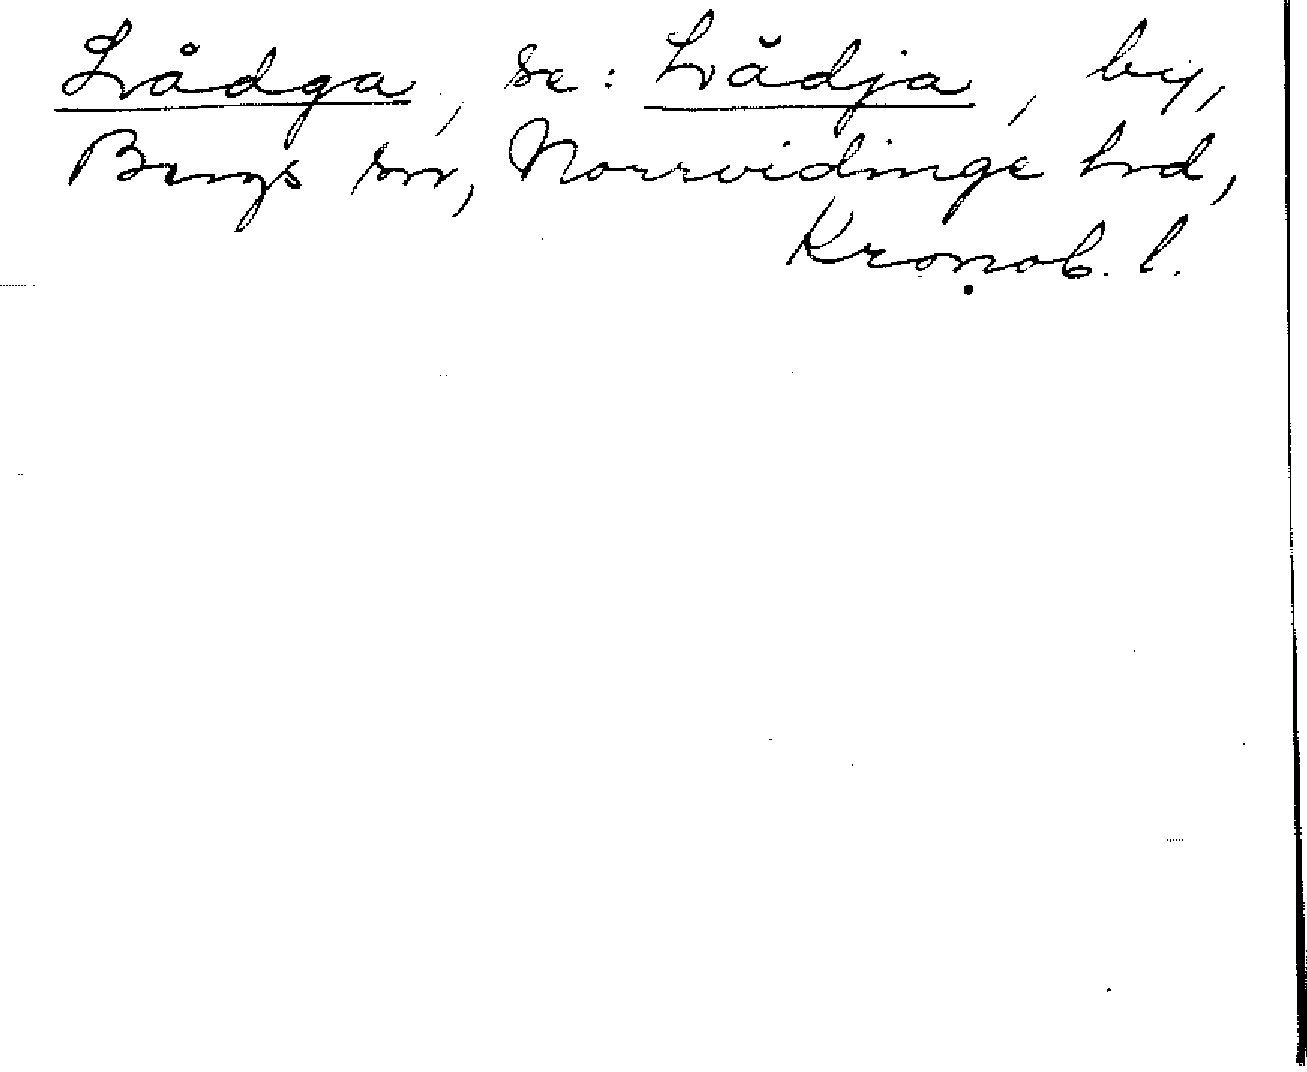 Lådga, se: Lådja, by,
Bergs sn, Norrvidinge hd,
Kronob. l.